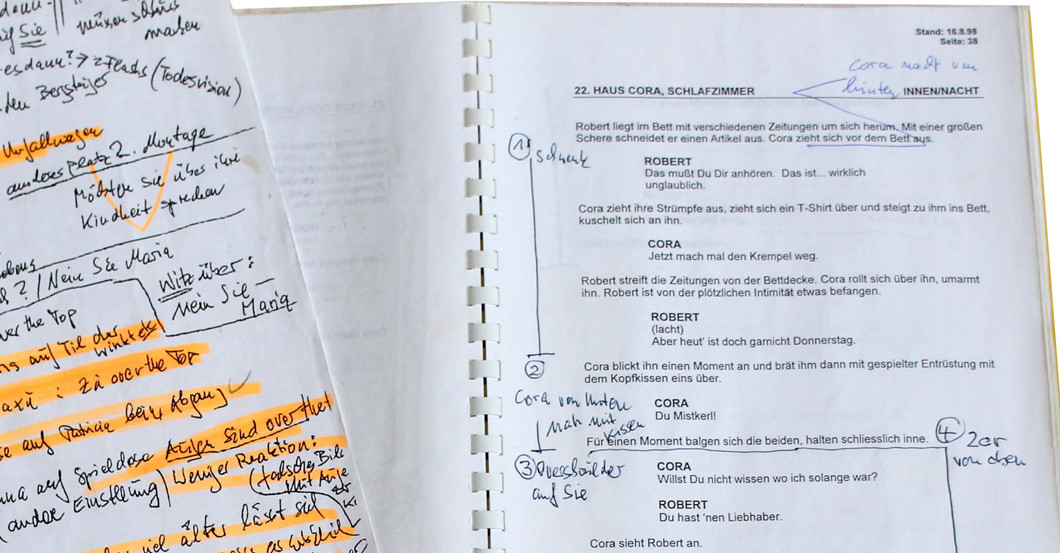 müssen
machen
Sie
es dann? → 2 Flashs (Todesvision)
den Bergsteiger
Unfallwagen
anderes Platz 2. Montage
Möchten sie über ihre
Kindheit sprechen
? / Nein Sie Maria
Witz über:
Nein Sie —
Maria
over the Top
auf Til der
winkt
: Zu over the Top
auf Patricia beim Abgang
auf Spieldose Augen sind over the
andere Einstellung) Weniger Reaktion:
viel älter lässt sich
Stand: 16.8.98
Seite: 38
Cora nackt von
hinten
22. HAUS CORA, SCHLAFZIMMER INNEN/NACHT
Robert liegt im Bett mit verschiedenen Zeitungen um sich herum. Mit einer großen
Schere schneidet er einen Artikel aus. Cora zieht sich vor dem Bett aus.
1
Schwenk
ROBERT
Das mußt Du Dir anhören. Das ist... wirklich
unglaublich.
Cora zieht ihre Strümpfe aus, zieht sich ein T-Shirt über und steigt zu ihm ins Bett,
kuschelt sich an ihn.
CORA
Jetzt mach mal den Krempel weg.
Robert streift die Zeitungen von der Bettdecke. Cora rollt sich über ihn, umarmt
ihn. Robert ist von der plötzlichen Intimität etwas befangen.
ROBERT
(lacht)
Aber heut' ist doch garnicht Donnerstag.
2
Cora blickt ihn einen Moment an und brät ihm dann mit gespielter Entrüstung mit
dem Kopfkissen eins über.
Cora von Unten
nah mit
Kissen
CORA
Du Mistkerl!
Für einen Moment balgen sich die beiden, halten schliesslich inne.
4 2er
von oben
3
auf Sie
CORA
Willst Du nicht wissen wo ich solange war?
ROBERT
Du hast 'nen Liebhaber.
Cora sieht Robert an.